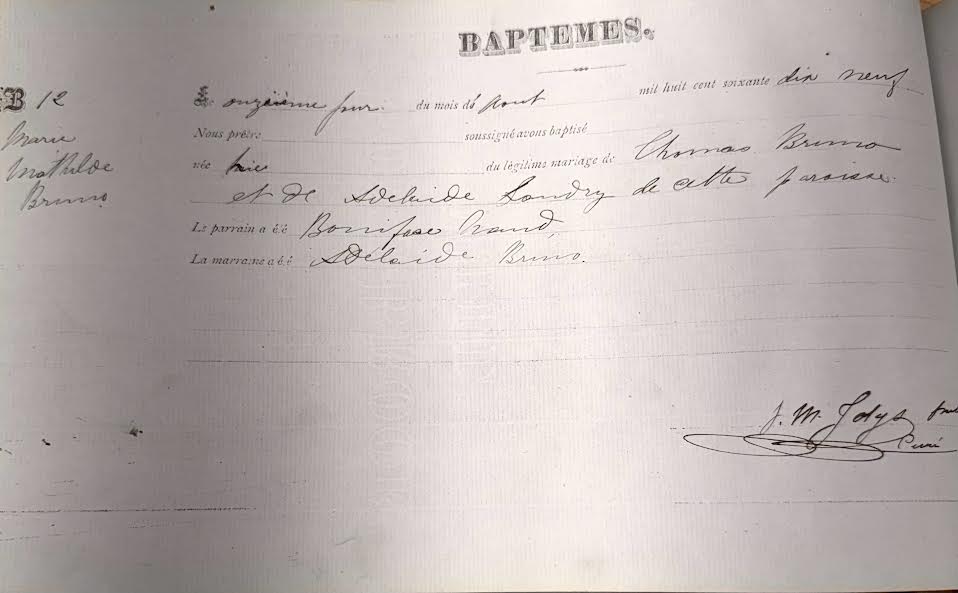 BAPTEMES.
B 12
Marie
Mathilde
Bruno
Le onzième jour du mois de Aout mil huit cent soixante dix neuf
Nous prêtre soussigné avons baptisé
née hier du légitime mariage de Thomas Bruno
et de Adelaide Landry de cette paroisse.
Le parrain a été Boniface
La marraine a été Adelaide Bruno.
J. M.
Curé